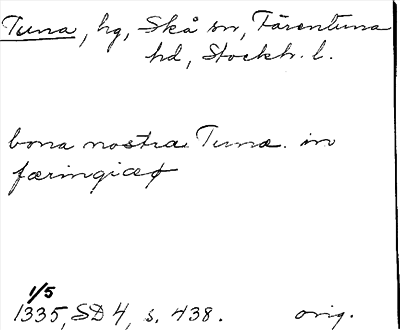 Tuna, hg, Skå sn, Färentuna
hd, Stockh. l.
bona nostra Tunæ in
færingiaø
1/5
1335, SD 4, s. 438. orig.